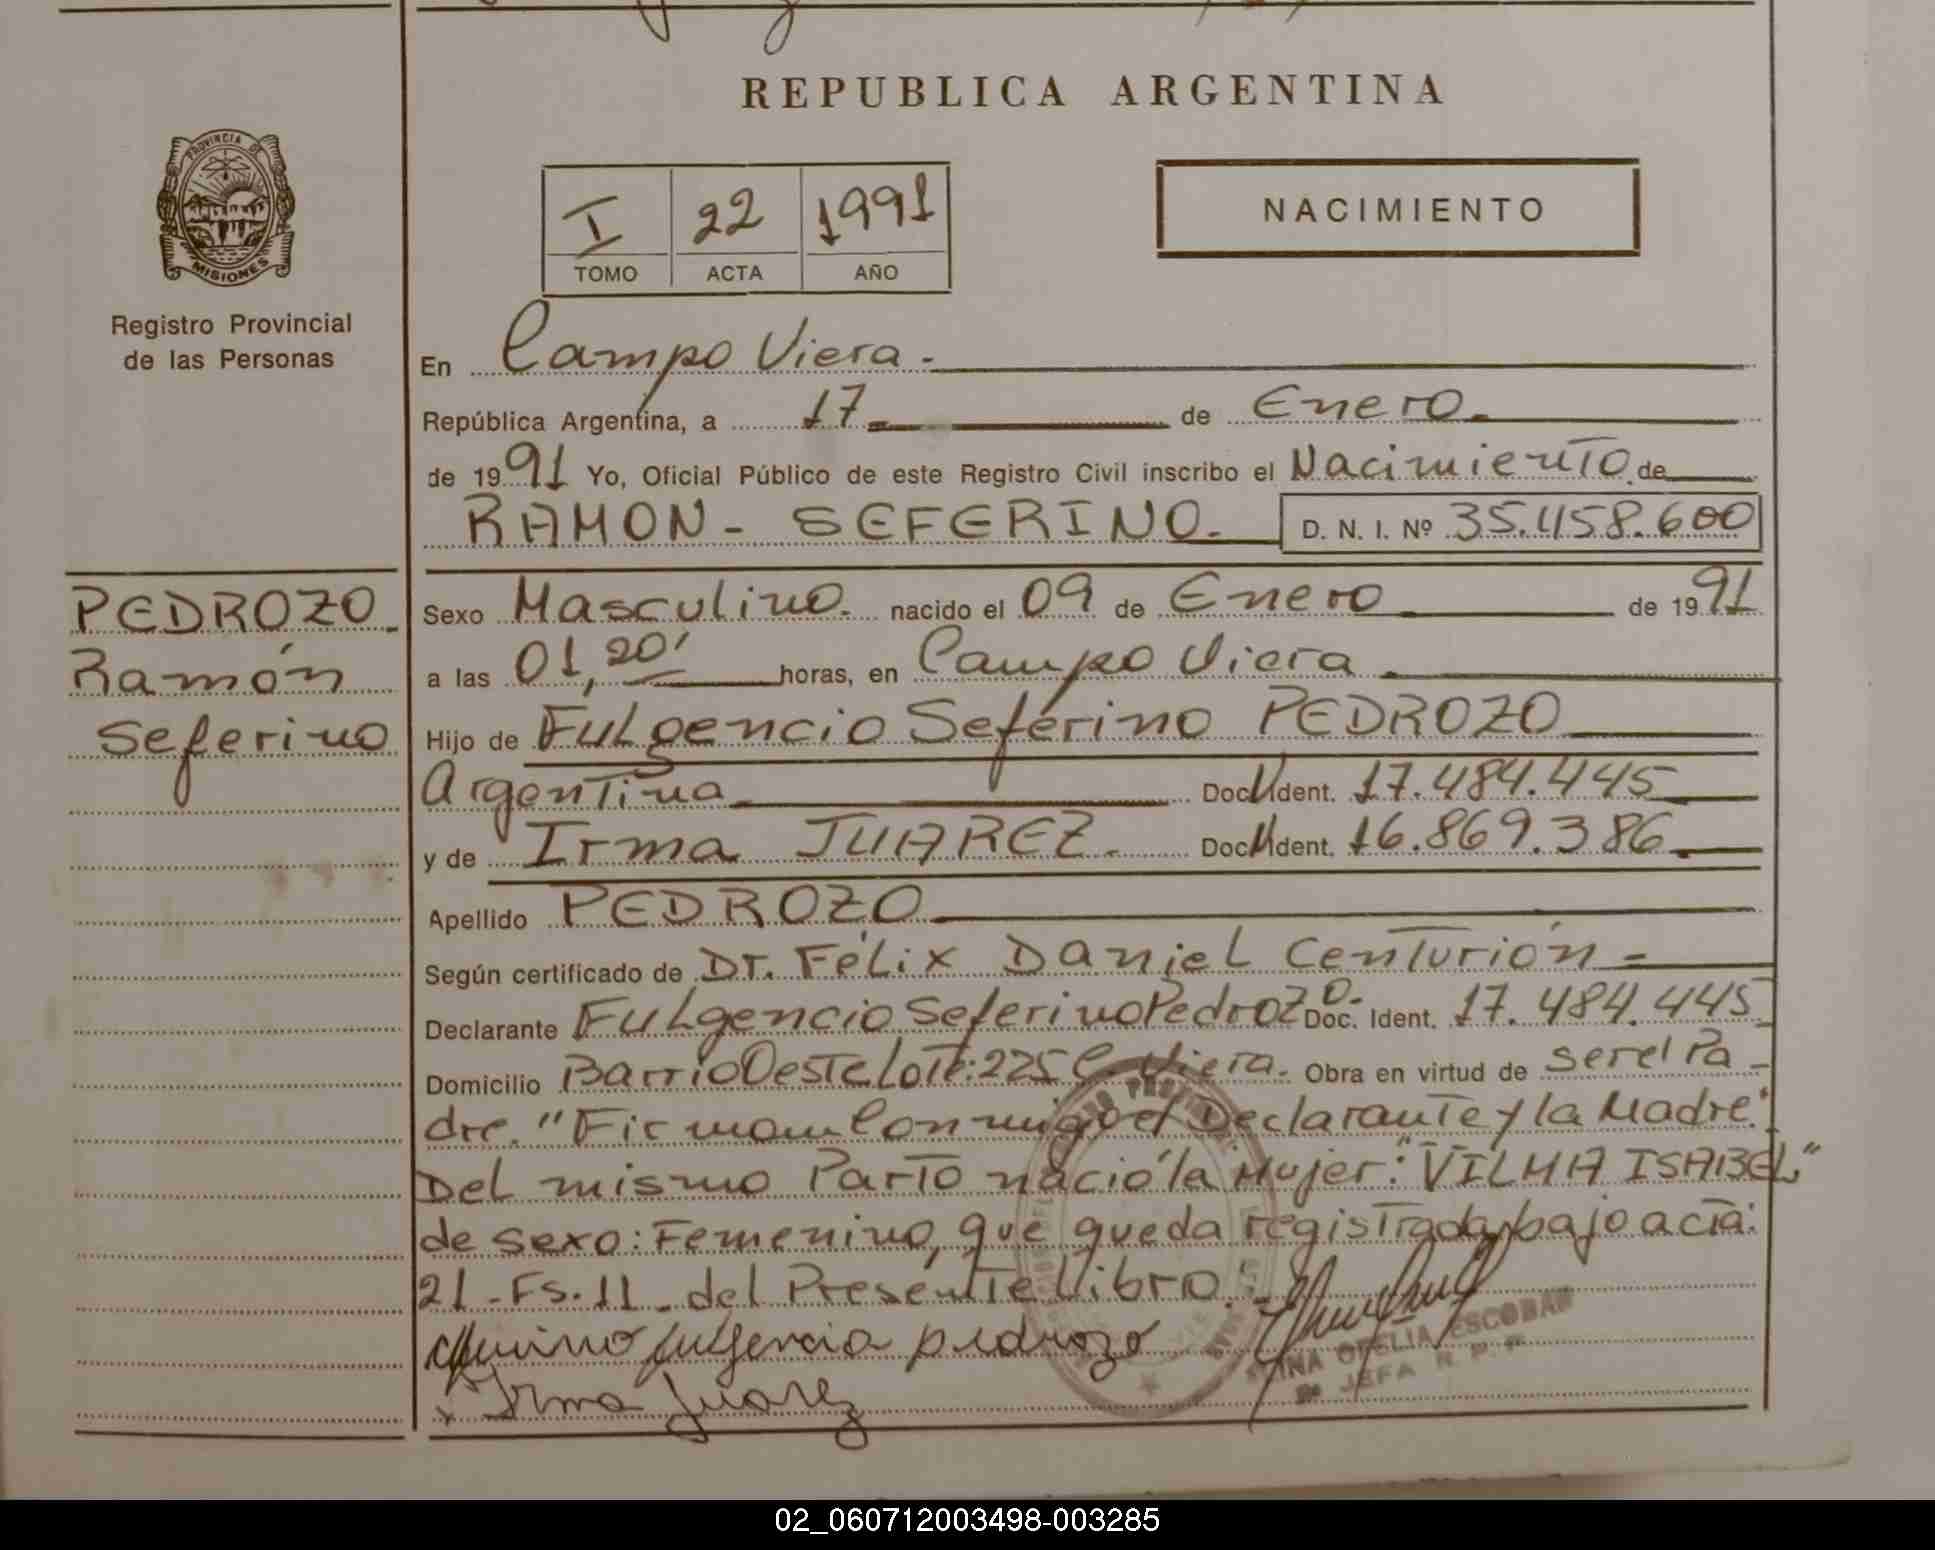 REPUBLICA ARGENTINA
PROVINCIA DE
MISIONES
Registro Provincial
de las Personas
I 22 1991
TOMO ACTA AÑO
NACIMIENTO
En Campo Viera.
República Argentina, a 17 de Enero.
de 1991 Yo, Oficial Público de este Registro Civil inscribo el Nacimiento de
RAMON - SEFERINO. D. N. I. Nº 35.458.600
PEDROZO
Ramón
Seferino
Sexo Masculino. nacido el 09 de Enero de 1991
a las 01,20' horas, en Campo Viera.
Hijo de Fulgencio Seferino PEDROZO
Argentina Doc. Ident. 17.484.445
y de Irma JUAREZ. Doc. Ident. 16.869.386
Apellido PEDROZO
Según certificado de Dr. Félix Daniel Centurión
Declarante Fulgencio Seferino Pedrozo. Doc. Ident. 17.484.445
Domicilio Barrio Oeste Lote: 225 C. Viera. Obra en virtud de ser el Pa-
dre. "Firman Conmigo el Declarante y la Madre"
Del mismo Parto nació la Mujer: "VILMA ISABEL"
de sexo: Femenino, que queda registrada bajo acta:
21 - Fs. 11 - del Presente Libro.
fulgencio pedrozo
x Irma Juarez
OFELIA ESCOBAR
JEFA R. P. P.
02_060712003498-003285